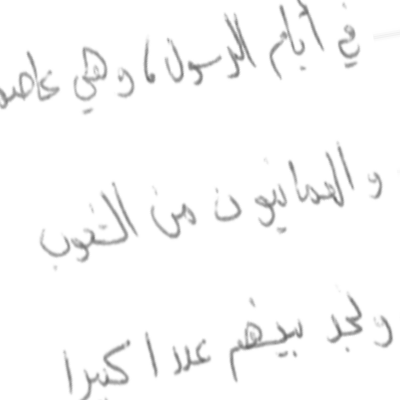 في أيام الرسول، وهي عاصم
والعمانيون من الشعوب
ونجد بينهم عددا كبيرا